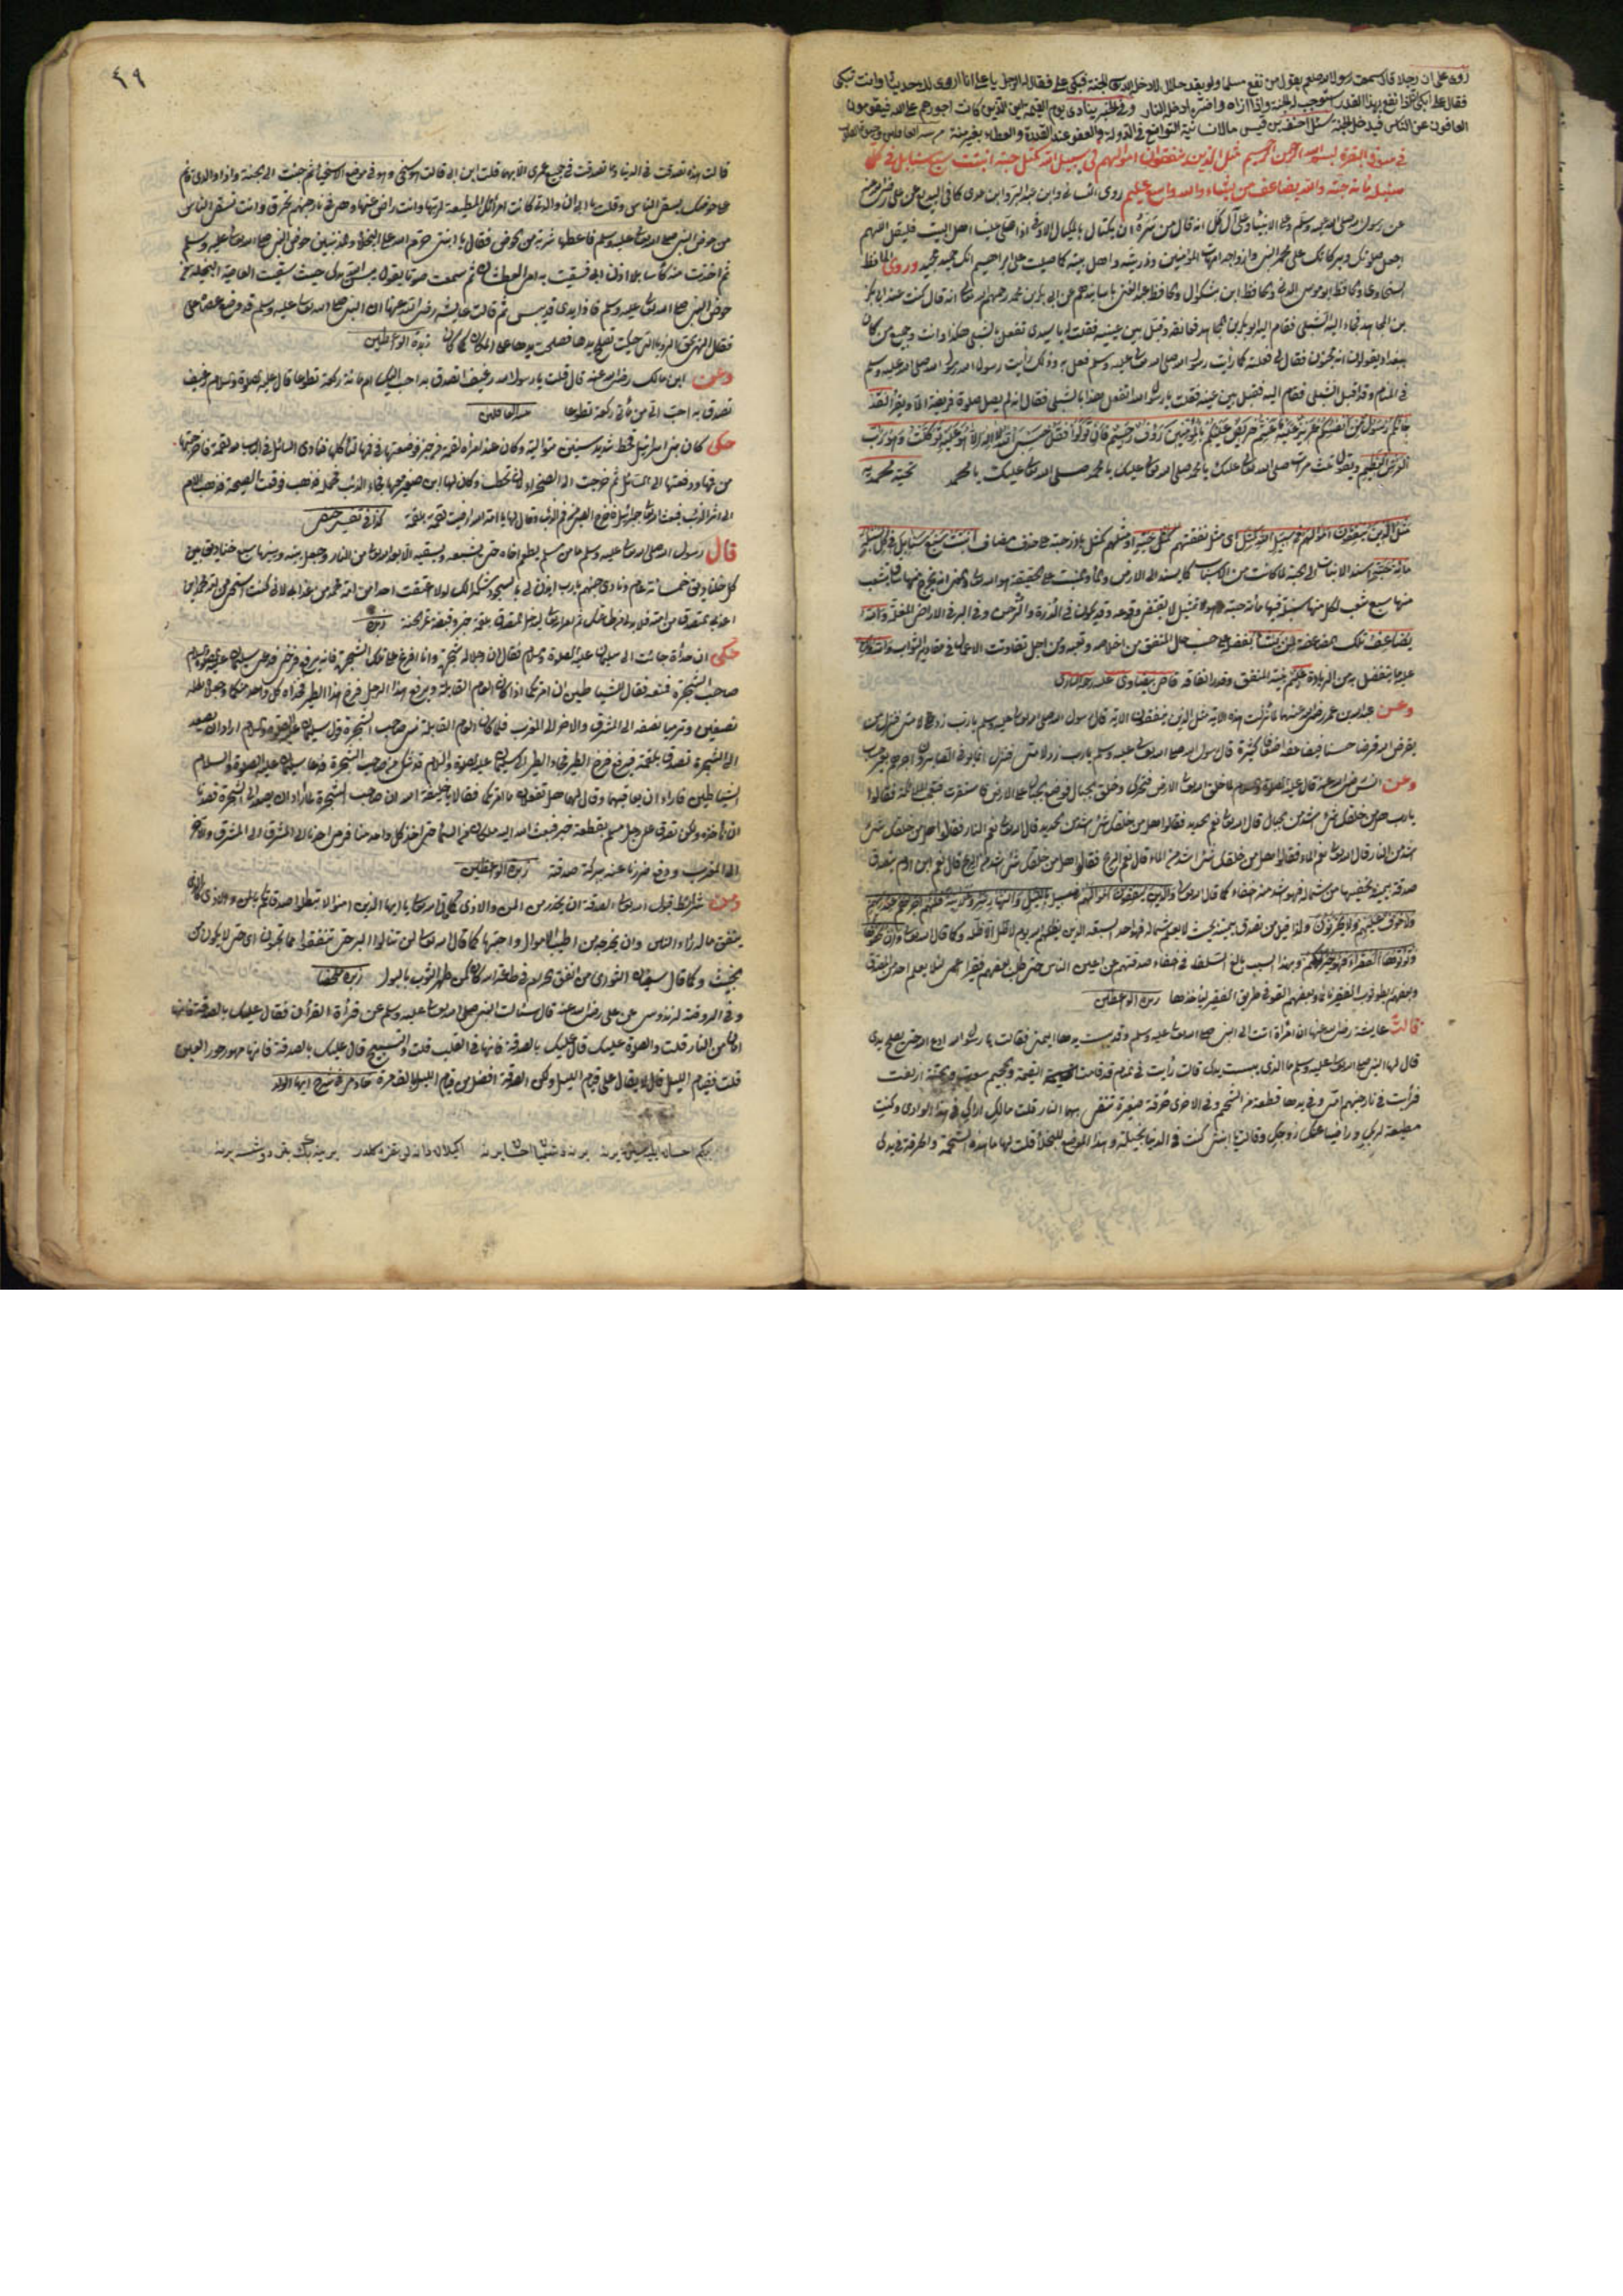 روى على ان رجلا قال سمعت رسول الله صلعم يقول من نفع مسلما ولو بقدر خلال لادخل الجنة فبكى على فقال الرجل يا على انا اروى لك حديثا وانت تبكى
فقال على ابكى اذا نفع بهذا القدر استوجب له الجنة واذا آذاه واضره ادخل النار وفى الخبر ينادى يوم القيمة اين الذين كانت اجورهم على الله فيقومون
العافون عن الناس فيدخل الجنة سئل احنف بن قيس ما الانسانية التواضع فى الدولة والعفو عند القدرة والعطاء بغير منة
فى سورة البقرة بسم الله الرحمن الرحيم مثل الذين ينفقون اموالهم فى سبيل الله كمثل حبة انبتت سبع سنابل فى كل
سنبلة مائة حبة والله يضاعف لمن يشاء والله واسع عليم روى النسائى وابن عبد البر وابن عدى كافى البديع عن على
عن رسول الله صلى الله عليه وسلم انه قال من سره ان يكتال بالمكيال الاوفى اذا صلى علينا اهل البيت فليقل اللهم
اجعل صلواتك وبركاتك على محمد النبى وازواجه امهات المؤمنين وذريته واهل بيته كما صليت على ابراهيم انك حميد مجيد وروى الحافظ
السخاوى والحافظ ابو موسى المدينى والحافظ ابن بشكوال والحافظ عبد الغنى باسانيدهم عن ابى بكر بن محمد رحمهم الله تعالى انه قال كنت عند ابى بكر
بن المجاهد فجاء اليه الشبلى فقام اليه ابو بكر بن المجاهد فعانقه وقبل بين عينيه فقلت له يا سيدى تفعل بالشبلى هكذا وانت وجميع من كان
ببغداد يقولون انه مجنون فقال لى فعلت كما رأيت رسول الله صلى الله تعالى عليه وسلم فعل به وذلك رأيت رسول الله صلى الله عليه وسلم
فى المنام وقد اقبل الشبلى فقام اليه فقبل بين عينيه فقلت يا رسول الله اتفعل هذا بالشبلى فقال انه لم يصل صلوة فريضة الا ويقرأ لقد
جاءكم رسول من انفسكم عزيز عليه ما عنتم حريص عليكم بالمؤمنين رؤف رحيم فان تولوا فقل حسبى الله لا اله الا هو عليه توكلت وهو رب
العرش العظيم ويقول ثلث مرات صلى الله تعالى عليك يا محمد صلى الله تعالى عليك يا محمد صلى الله تعالى عليك يا محمد تحية محمدية
مثل الذين ينفقون اموالهم فى سبيل الله كمثل حبة اى مثل نفقتهم كمثل حبة او مثلهم كمثل باذر حبة على حذف مضاف انبتت سبع سنابل فى كل سنبلة
مائة حبة اسند الانبات الى الحبة لما كانت من الاسباب كما يسند الى الارض والماء والمنبت على الحقيقة هو الله تعالى والمعنى انه يخرج منها ساق يتشعب
منها سبع شعب لكل منها سنبلة فيها مائة حبة وهو تمثيل لا يقتضى وقوعه وقد يكون فى الذرة والدخن وفى البر فى الاراضى المغلة والله
يضاعف تلك المضاعفة لمن يشاء بفضله على حسب حال المنفق من اخلاصه وتعبه ومن اجل تفاوتت الاعمال فى مقادير الثواب والله واسع
لا يضيق عليه ما يتفضل به من الزيادة عليم بنية المنفق وقدر انفاقه قاضى بيضاوى عليه رحمة البارى
وعن عبد الله بن عمر رضى الله عنهما لما نزلت هذه الآية مثل الذين ينفقون الآية قال رسول الله صلى الله تعالى عليه وسلم يا رب زد لامتى فنزل من
يقرض الله قرضا حسنا فيضاعفه اضعافا كثيرة قال رسول الله صلى الله تعالى عليه وسلم يا رب زد لامتى فنزل انما يوفى الصابرون اجرهم بغير حساب
وعن انس رضى الله عنه قال عليه الصلوة والسلام لما خلق الله تعالى الارض فتحركت وخلق الجبال فوضع الجبال على الارض فاستقرت فتعجب الملائكة فقالوا
يا رب هل من خلقك شئ اشد من الجبال قال الله تعالى نعم الحديد فقالوا هل من خلقك شئ اشد من الحديد قال الله تعالى نعم النار فقالوا هل من خلقك شئ
اشد من النار قال الله تعالى نعم الماء فقالوا هل من خلقك شئ اشد من الماء قال نعم الريح فقالوا هل من خلقك شئ اشد من الريح قال نعم ابن آدم يتصدق
صدقة بيمينه يخفيها من شماله فهو اشد منه خفاء كما قال الله تعالى والذين ينفقون اموالهم بالليل والنهار سرا وعلانية فلهم اجرهم عند ربهم
ولا خوف عليهم ولا هم يحزنون ولذا قيل من تصدق بيمينه بحيث لا يعلم شماله فهو احد السبعة الذين يظلهم الله يوم لا ظل الا ظله وكما قال الله تعالى وان تخفوها
وتؤتوها الفقراء فهو خير لكم وبهذا السبب بالغ السلف فى اخفاء صدقتهم عن اعين الناس حتى طلب بعضهم فقيرا اعمى لئلا يعلم احد من المتصدق
وبعضهم يطوف بالفقير نائما وبعضهم القوا فى طريق الفقير ليأخذها زبدة الواعظين
قالت عايشة رضى الله عنها ان امرأة اتت الى النبى صلى الله تعالى عليه وسلم وقد يبست يدها اليمنى فقالت يا رسول الله ادع الله حتى يصلح يدى
قال لها النبى صلى الله تعالى عليه وسلم ما الذى يبست يدك قالت رأيت فى المنام قد قامت القيمة والجحيم سعرت والجنة ازلفت
فرأيت فى نار جهنم امى وفى يدها قطعة من الشحم وفى الاخرى خرقة صغيرة تتقى بهما النار قلت مالك اراك فى هذا الوادى وكنت
مطيعة لربك وراضيا عنك زوجك وقالت يا ابنتى كنت فى الدنيا بخيلة وهذا الموضع للبخلاء قلت لها ما هذه الشحمة والخرقة فى يدك
٤٩
قالت هذه تصدقت فى الدنيا وما تصدقت فى جميع عمرى الا بهما قلت اين ابى قالت هو سخى وهو فى موضع الاسخياء ثم جئت الى الجنة واذا والدى قائم
على حوضك يسقى الناس وقلت يا ابى ان والدة كانت امرأتك المطيعة لربها وانت راض عنها وهى فى نار جهنم تحرق وانت تسقى الناس
من حوض النبى صلى الله تعالى عليه وسلم فاعطها شربة من الحوض فقال يا ابنتى حرم الله على البخلاء والمذنبين حوض النبى صلى الله تعالى عليه وسلم
ثم اخذت منه كأسا بلا اذن ابى فسقيت به امى العطشان ثم سمعت صوتا يقول يبس الله يدك حيث سقيت العاصية البخيلة من
حوض النبى صلى الله تعالى عليه وسلم فاذا يدى قد يبس ثم قالت عايشة رضى الله عنها ان النبى صلى الله تعالى عليه وسلم قد وضع عصاه على
يدها فقال الهى بحق الرؤيا التى حكيت تصلح يدها فصلحت يدها على المكان كما كان زبدة الواعظين
وعن ابن مالك رضى الله عنه قال قلت يا رسول الله رغيف اتصدق به احب اليك ام مائة ركعة تطوعا قال عليه الصلوة والسلام رغيف
تصدق به احب الى من مائتى ركعة تطوعا
حكى كان بنى اسرائيل قحط شديد سنين متوالية وكان عند امرأة لقمة من خبز فوضعتها فى فمها لتأكل فنادى السائل فى الباب لقمة فاخرجتها
من فمها ودفعتها الى السائل ثم خرجت الى الصحراء لتحتطب وكان لها ابن صغير معها فجاء الذئب فحمله فذهب فوقعت الصيحة فذهبت الام
الى اثر الذئب فبعث الله تعالى جبرائيل فاخرج الصبى من فم الذئب وقال لها يا امة الله ارضيت لقمة بلقمة كذا فى تفسير حنفى
قال رسول الله صلى الله تعالى عليه وسلم ما من مسلم يطعم اخاه حتى يشبعه ويسقيه الا ابعده الله تعالى من النار وجعل بينه وبينها سبع خنادق بين
كل خندق خمسمائة عام ونادى جهنم يا رب ائذن لى بالسجود شكرا لك لولا اعتقت احدا من امة محمد من عذابى لانى كنت استحى من محمد ان
اعذب بمتصدق من امته ثم امر الله تعالى ليدخل المتصدق بلقمة خبز وقبضة تمر الجنة زبدة
حكى ان حدأة جائت الى سليمان عليه الصلوة والسلام فقال ان رجلا له شجرة وانا افرخ على تلك الشجرة فانه يرفع فرخى فدعى سليمان عليه الصلوة والسلام
صاحب الشجرة فمنعه فقال للشياطين ان امرتكما اذا كان العام القابلة ويرفع هذا الرجل فرخ هذا الطير فخذاه كل واحد منكما وجعل له
نصفين وترميا نصفه الى المشرق والآخر الى المغرب فلما كان العام القابلة نسى صاحب الشجرة قول سليمان عليه الصلوة والسلام اراد ان يصعد
الى الشجرة فتصدق بلقمة فرفع فرخ الطير فجاء الطير الى سليمان عليه الصلوة والسلام قد شكى من صاحب الشجرة فدعا سليمان عليه الصلوة والسلام
الشياطين فاراد ان يعاقبهما وقال لهما هل تفعلان ما امرتكما فقالا يا خليفة الله ان صاحب الشجرة لما اراد ان يصعد الى الشجرة قصدنا
ان نأخذه ولكن تصدق على رجل مسلم بقطعة خبز فبعث الله اليه ملكان من السماء حتى اخذ كل واحد منا فرمى احدنا الى المشرق الى المشرق والآخر
الى المغرب ودفع ضررنا عنه ببركة صدقة زبدة الواعظين
ومن شرائط قبول الله تعالى الصدقة ان يحذر من المن والاذى كما قال الله تعالى يا ايها الذين امنوا لا تبطلوا صدقاتكم بالمن والاذى كالذى
ينفق ماله رئاء الناس وان يخرجه من اطيب الاموال واحبها كما قال الله تعالى لن تنالوا البر حتى تنفقوا مما تحبون اى حتى لا يكون من
الخبيث وكما قال سفيان الثورى من انفق الحرام فى طاعة الله كان كمن طهر الثوب بالبول زبدة ملخصا
وفى الروضة لزندوس عن على رضى الله عنه قال سئالت النبى صلى الله تعالى عليه وسلم عن قرأة القرآن فقال عليك بالصدقة فانها
امان من النار قلت والصلوة عليك قال عليك بالصدقة فانها فى القلب قلت والتسبيح قال عليك بالصدقة فانها مهور حور العين
قلت فقيام الليل قال لا يقال على قيام الليل ولكن الصدقة افضل من قيام الليل الف مرة خادمى فى شرح ايها الولد